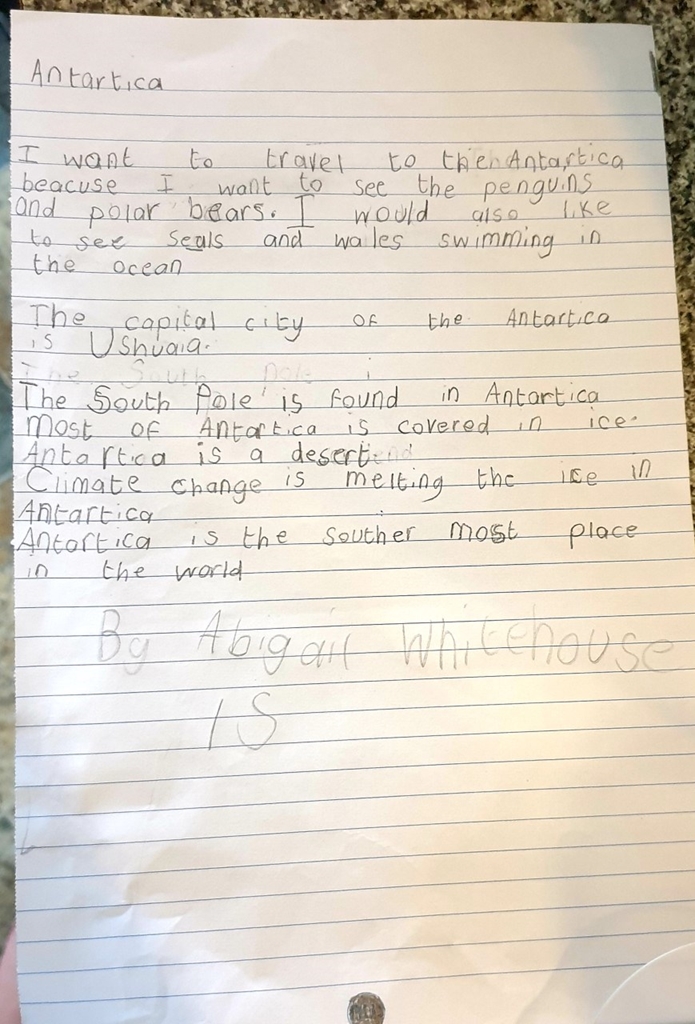 Antartica
I want to travel to the Antartica
beacuse I want to see the penguins
and polar bears. I would also like
to see seals and wales swimming in
the ocean
The capital city of the Antartica
is Ushuaia.
The South Pole i
The South Pole is found in Antartica
most of Antartica is covered in ice.
Antartica is a desert.
Climate change is melting the ice in
Antartica
Antartica is the souther most place
in the world
By Abigail Whitehouse
1S